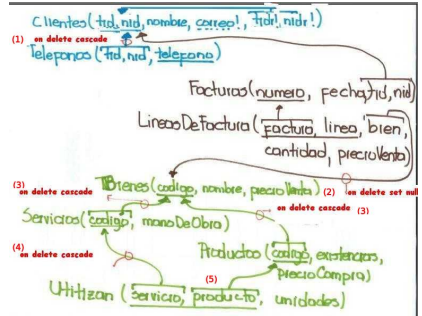 Clientes (tid, nid, nombre, correo!, tidr!, nidr!)
(1) on delete cascade
Telefonos (tid, nid, telefono)
Facturas (numero, fecha, tid, nid)
LineasDeFactura (factura, linea, bien,
cantidad, precioVenta)
(3) Bienes (codigo, nombre, precioVenta) (2) on delete set null
on delete cascade
on delete cascade (3)
Servicios (codigo, manoDeObra)
(4)
on delete cascade
Productos (codigo, existencias,
precioCompra)
(5)
Utilizan (servicio, producto, unidades)